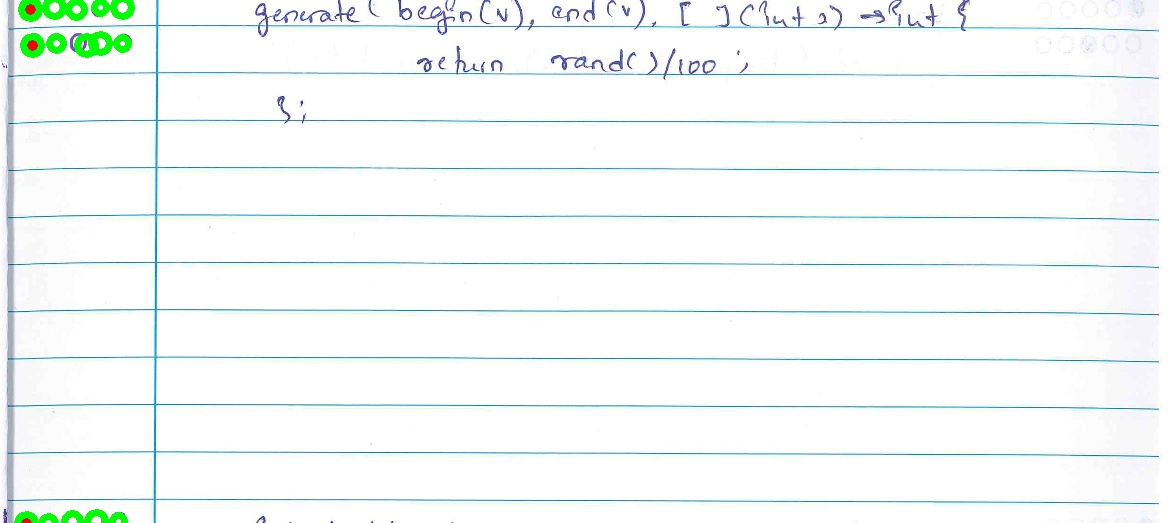 generate( begin(v), end(v), [ ](int x) →int {
return rand()/100 ;
};